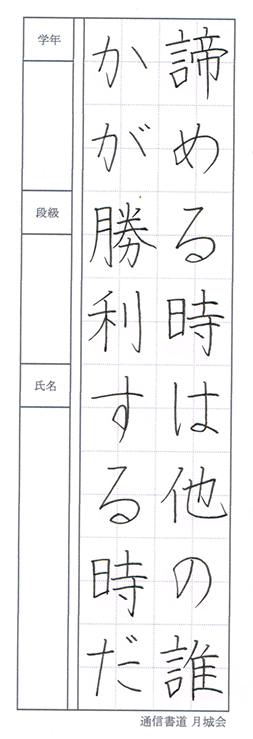 諦める時は他の誰
かが勝利する時だ
学年
段級
氏名
通信書道 月城会